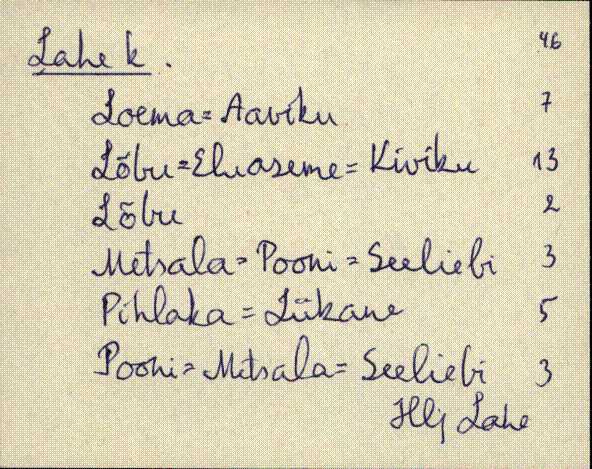 Lahe k. 46
Loema = Aaviku 7
Lõbu = Eluaseme = Kiviku 13
Lõbu 2
Metsala = Pooni = Seeliebi 3
Pihlaka = Lükane 5
Pooni = Metsala = Seeliebi 3
Hlj Lahe